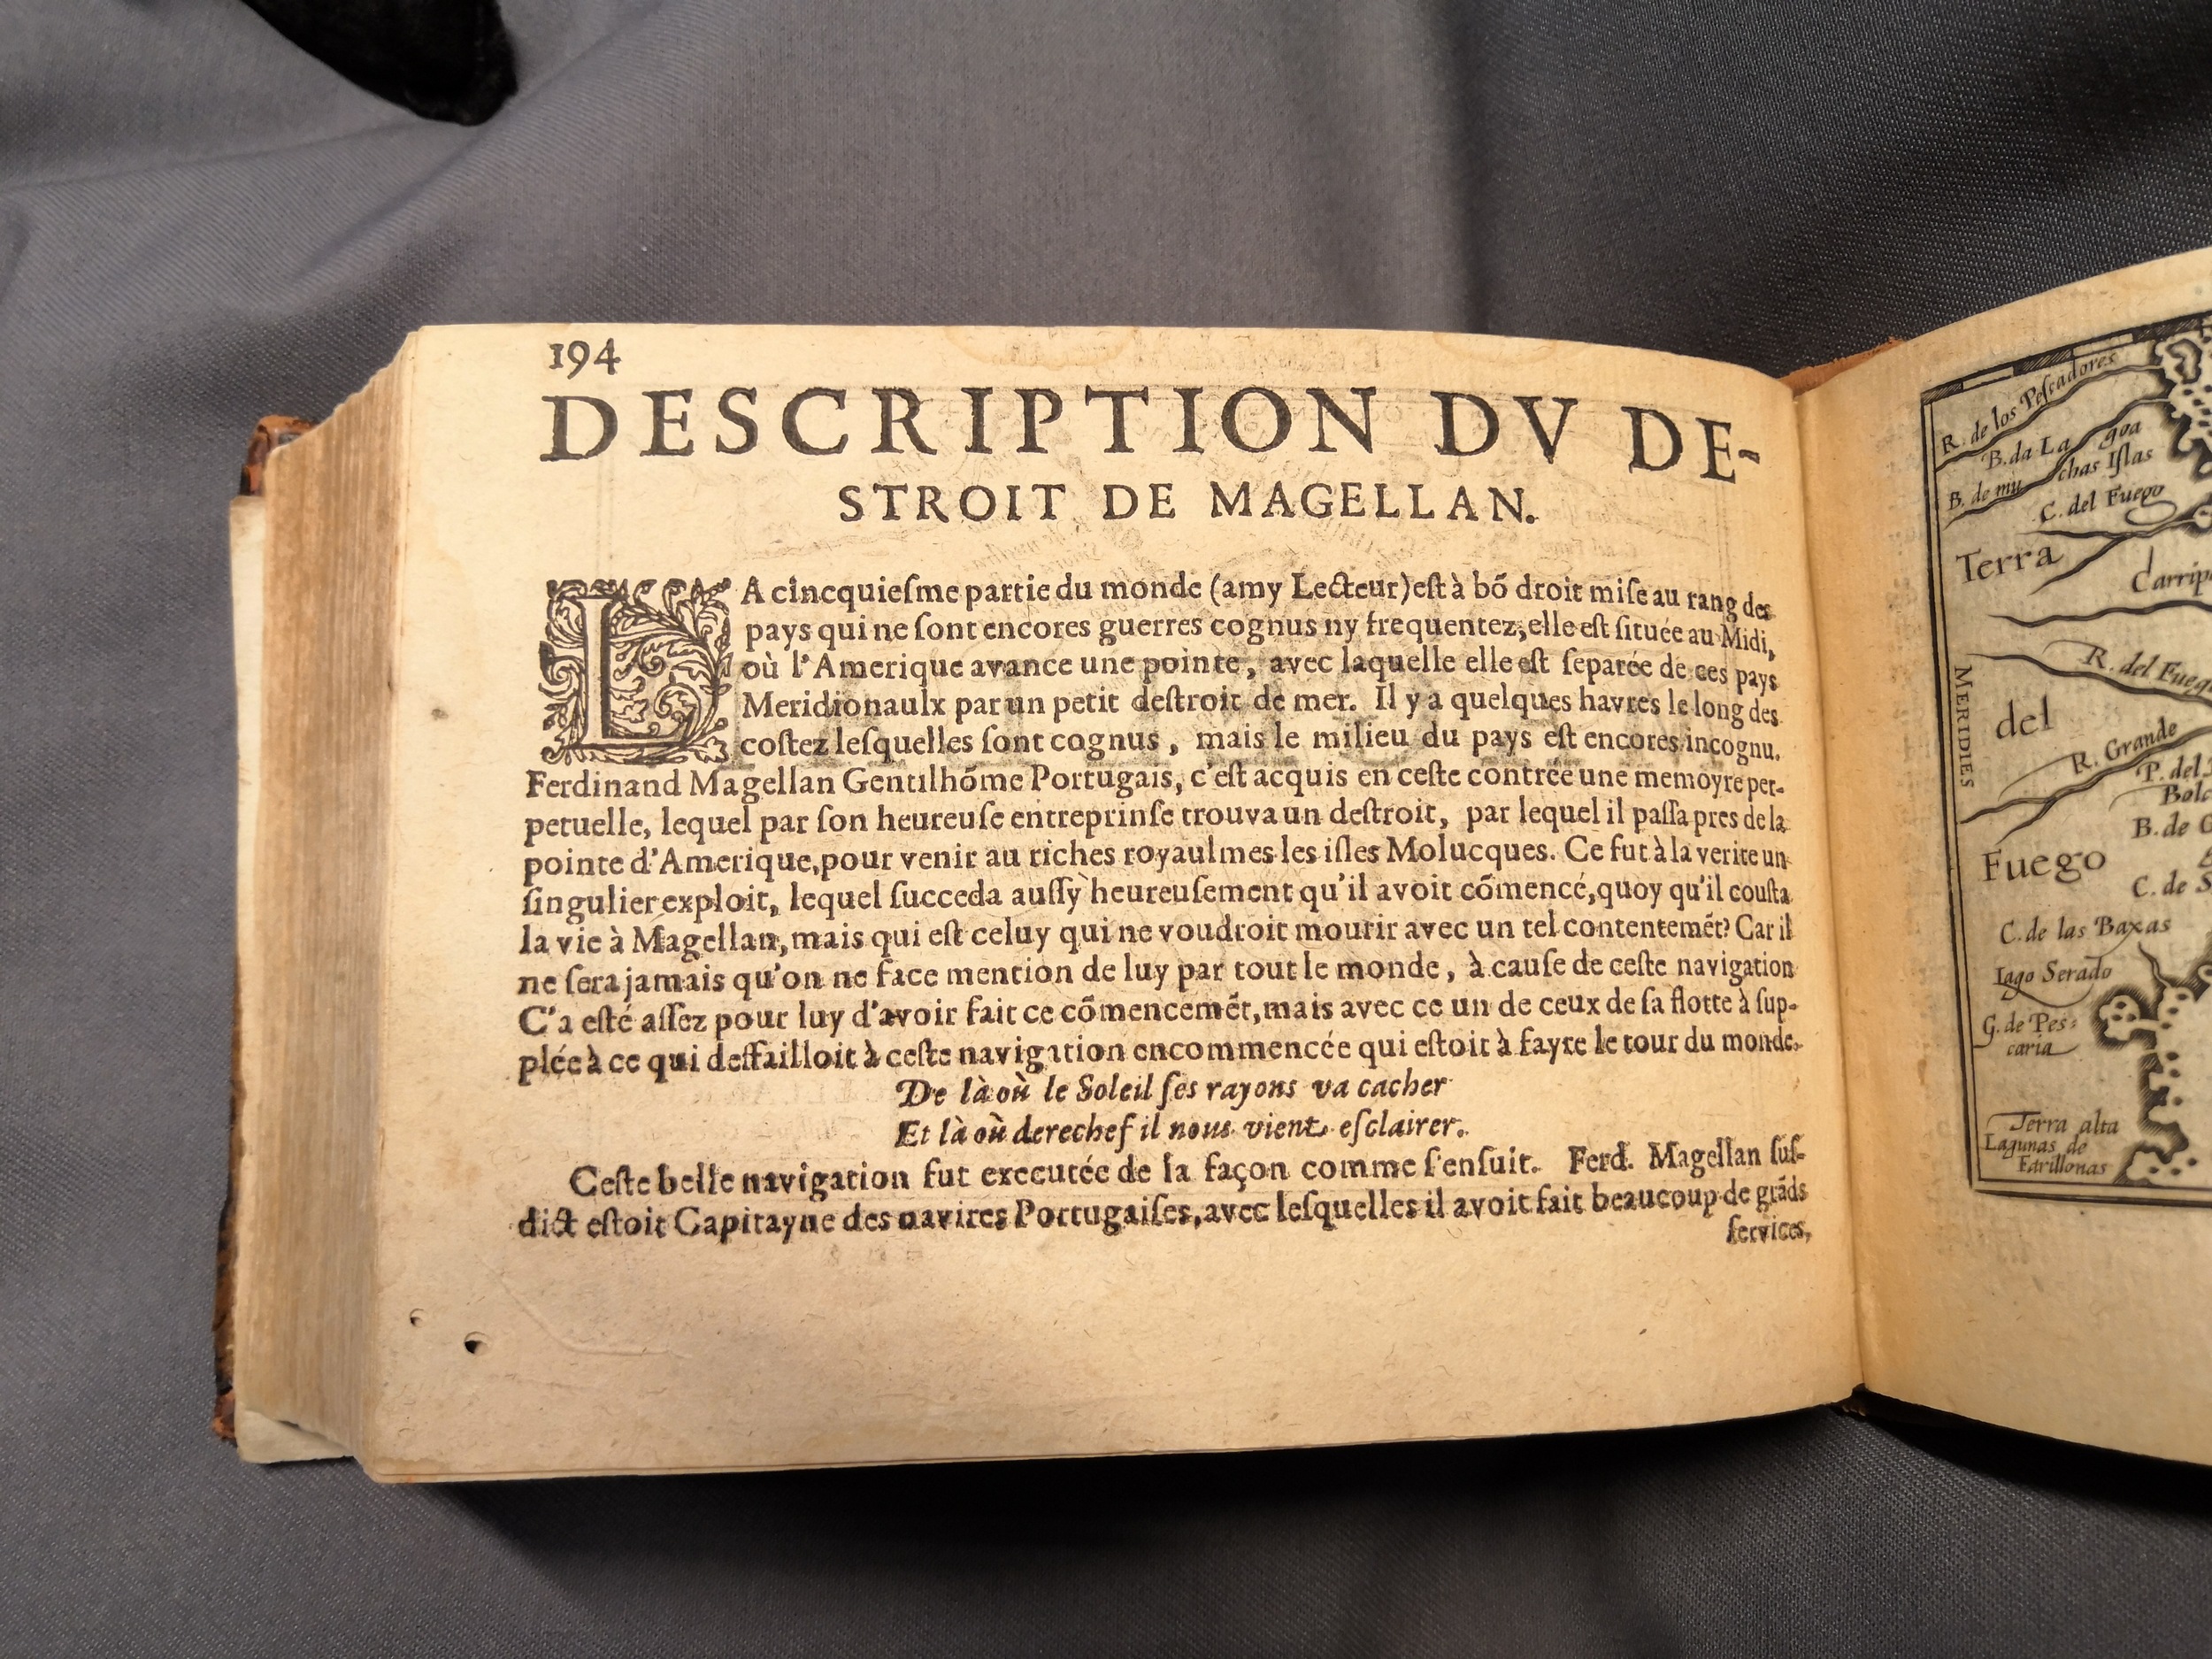 194
DESCRIPTION DV DE-
STROIT DE MAGELLAN.
LA cincquieſme partie du monde (amy Lecteur) eſt à bõ droit miſe au rang des
pays qui ne ſont encores guerres cognus ny frequentez, elle eſt ſituée au Midi,
où l'Amerique avance une pointe, avec laquelle elle eſt ſeparée de ces pays
Meridionaulx par un petit deſtroit de mer. Il y a quelques havres le long des
coſtez leſquelles ſont cognus, mais le milieu du pays eſt encores incognu.
Ferdinand Magellan Gentilhõme Portugais, c'eſt acquis en ceſte contrée une memoyre per-
petuelle, lequel par ſon heureuſe entreprinſe trouva un deſtroit, par lequel il paſſa pres de la
pointe d'Amerique, pour venir au riches royaulmes les iſles Molucques. Ce fut à la verite un
ſingulier exploit, lequel ſucceda auſſy heureuſement qu'il avoit cõmencé, quoy qu'il couſta
la vie à Magellan, mais qui eſt celuy qui ne voudroit mourir avec un tel contentemẽt? Car il
ne ſera jamais qu'on ne face mention de luy par tout le monde, à cauſe de ceſte navigation
C'a eſté aſſez pour luy d'avoir fait ce cõmencemẽt, mais avec ce un de ceux de ſa flotte à ſup-
plée à ce qui deffailloit à ceſte navigation encommencée qui eſtoit à fayre le tour du monde.
De là où le Soleil ſes rayons va cacher
Et là où derechef il nous vient eſclairer.
Ceſte belle navigation fut executée de la façon comme ſ'enſuit. Ferd. Magellan ſuſ-
dict eſtoit Capitayne des navires Portugaiſes, avec leſquelles il avoit fait beaucoup de grãds
ſervices,
R. de los Peſcadores
B. da La goa
B. de mu chas Iſlas
C. del Fuego
Terra
Carrip
R. del Fuego
MERIDIES
del
R. Grande
P. del
B. de
Fuego
C. de S
C. de las Baxas
Lago Serado
G. de Pes:
caria
Terra alta
Lagunas de
Farillonas